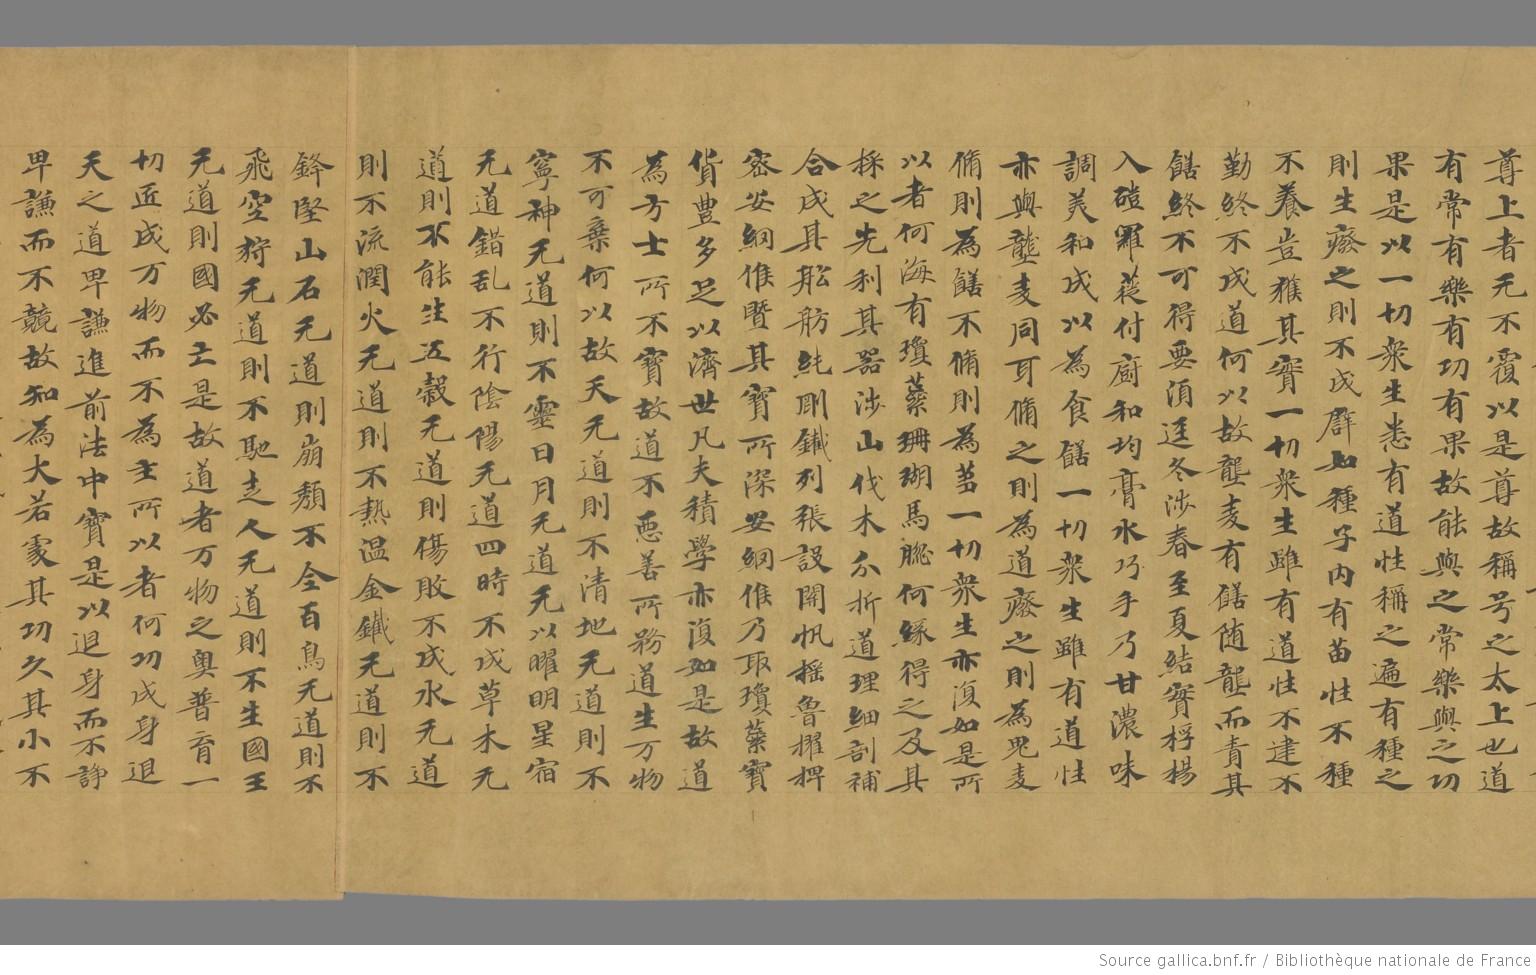 尊上者无不覆以是尊故稱号之太上也道
有常有樂有功有果故能與之常樂與之功
果是以一切衆生悉有道性稱之遍有種之
則生癈之則不成群如種子内有苗性不種
不養豈獲其實一切衆生雖有道性不建不
勤終不成道何以故䴡麦有饍随䴡而責其
饍終不可得要湏逕冬涉春至夏結實桴楊
入磑羅蓰付廚和均膏水巧手乃甘濃味
調美和成以為食饍一切衆生雖有道性
亦與䴡麦同耳脩之則為道癈之則為鬼麦
脩則為饍不脩則為苗一切衆生亦復如是所
以者何海有瓊蘂珊瑚馬𦝫何緣得之及其
採之先利其器涉山伐木分析道理細剖補
合成其舩舫純剛鐵列張設開帆揺魯櫂押
密安網惟暨其寶所深安網惟乃取瓊蘂寶
貨豊多足以濟世凡夫積學亦復如是故道
為方士所不寳故道不惡善所務道生万物
不可棄何以故天无道則不清地无道則不
寧神无道則不靈日月无道无以曜明星宿
无道錯乱不行陰陽无道四時不成草木无
道則不能生五穀无道則傷敗不成水无道
則不流潤火无道則不熱温金鐵无道則不
鋒堅山石无道則崩頽不全百鳥无道則不
飛空狩无道則不馳走人无道則不生國王
无道則國必亡是故道者万物之奥普育一
切匠成万物而不為主所以者何功成身退
天之道卑謙進前法中寶是以退身而不諍
卑謙而不競故知為大若濛其功久其小不